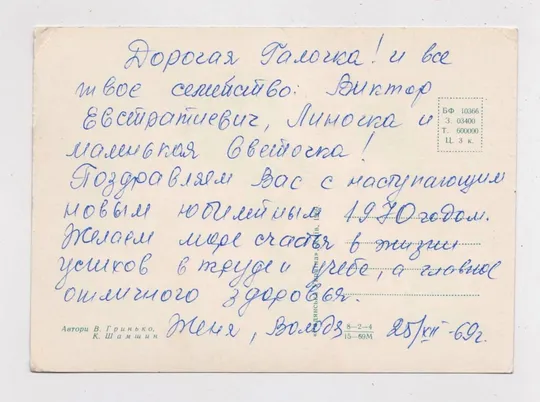 Дорогая Галочка! и все
твое семейство: Виктор
Евстратиевич, Линочка и
маленькая Светочка!
Поздравляем Вас с наступающим
новым юбилейным 1970 годом.
Желаем море счастья в жизни
успехов в труде и учебе, а главное
отличного здоровья.
Женя, Володя 25/XII-69г.
БФ 10366
З. 03400
Т. 600000
Ц. 3 к.
Автори В. Гринько,
К. Шамшин
8-2-4
15-69М